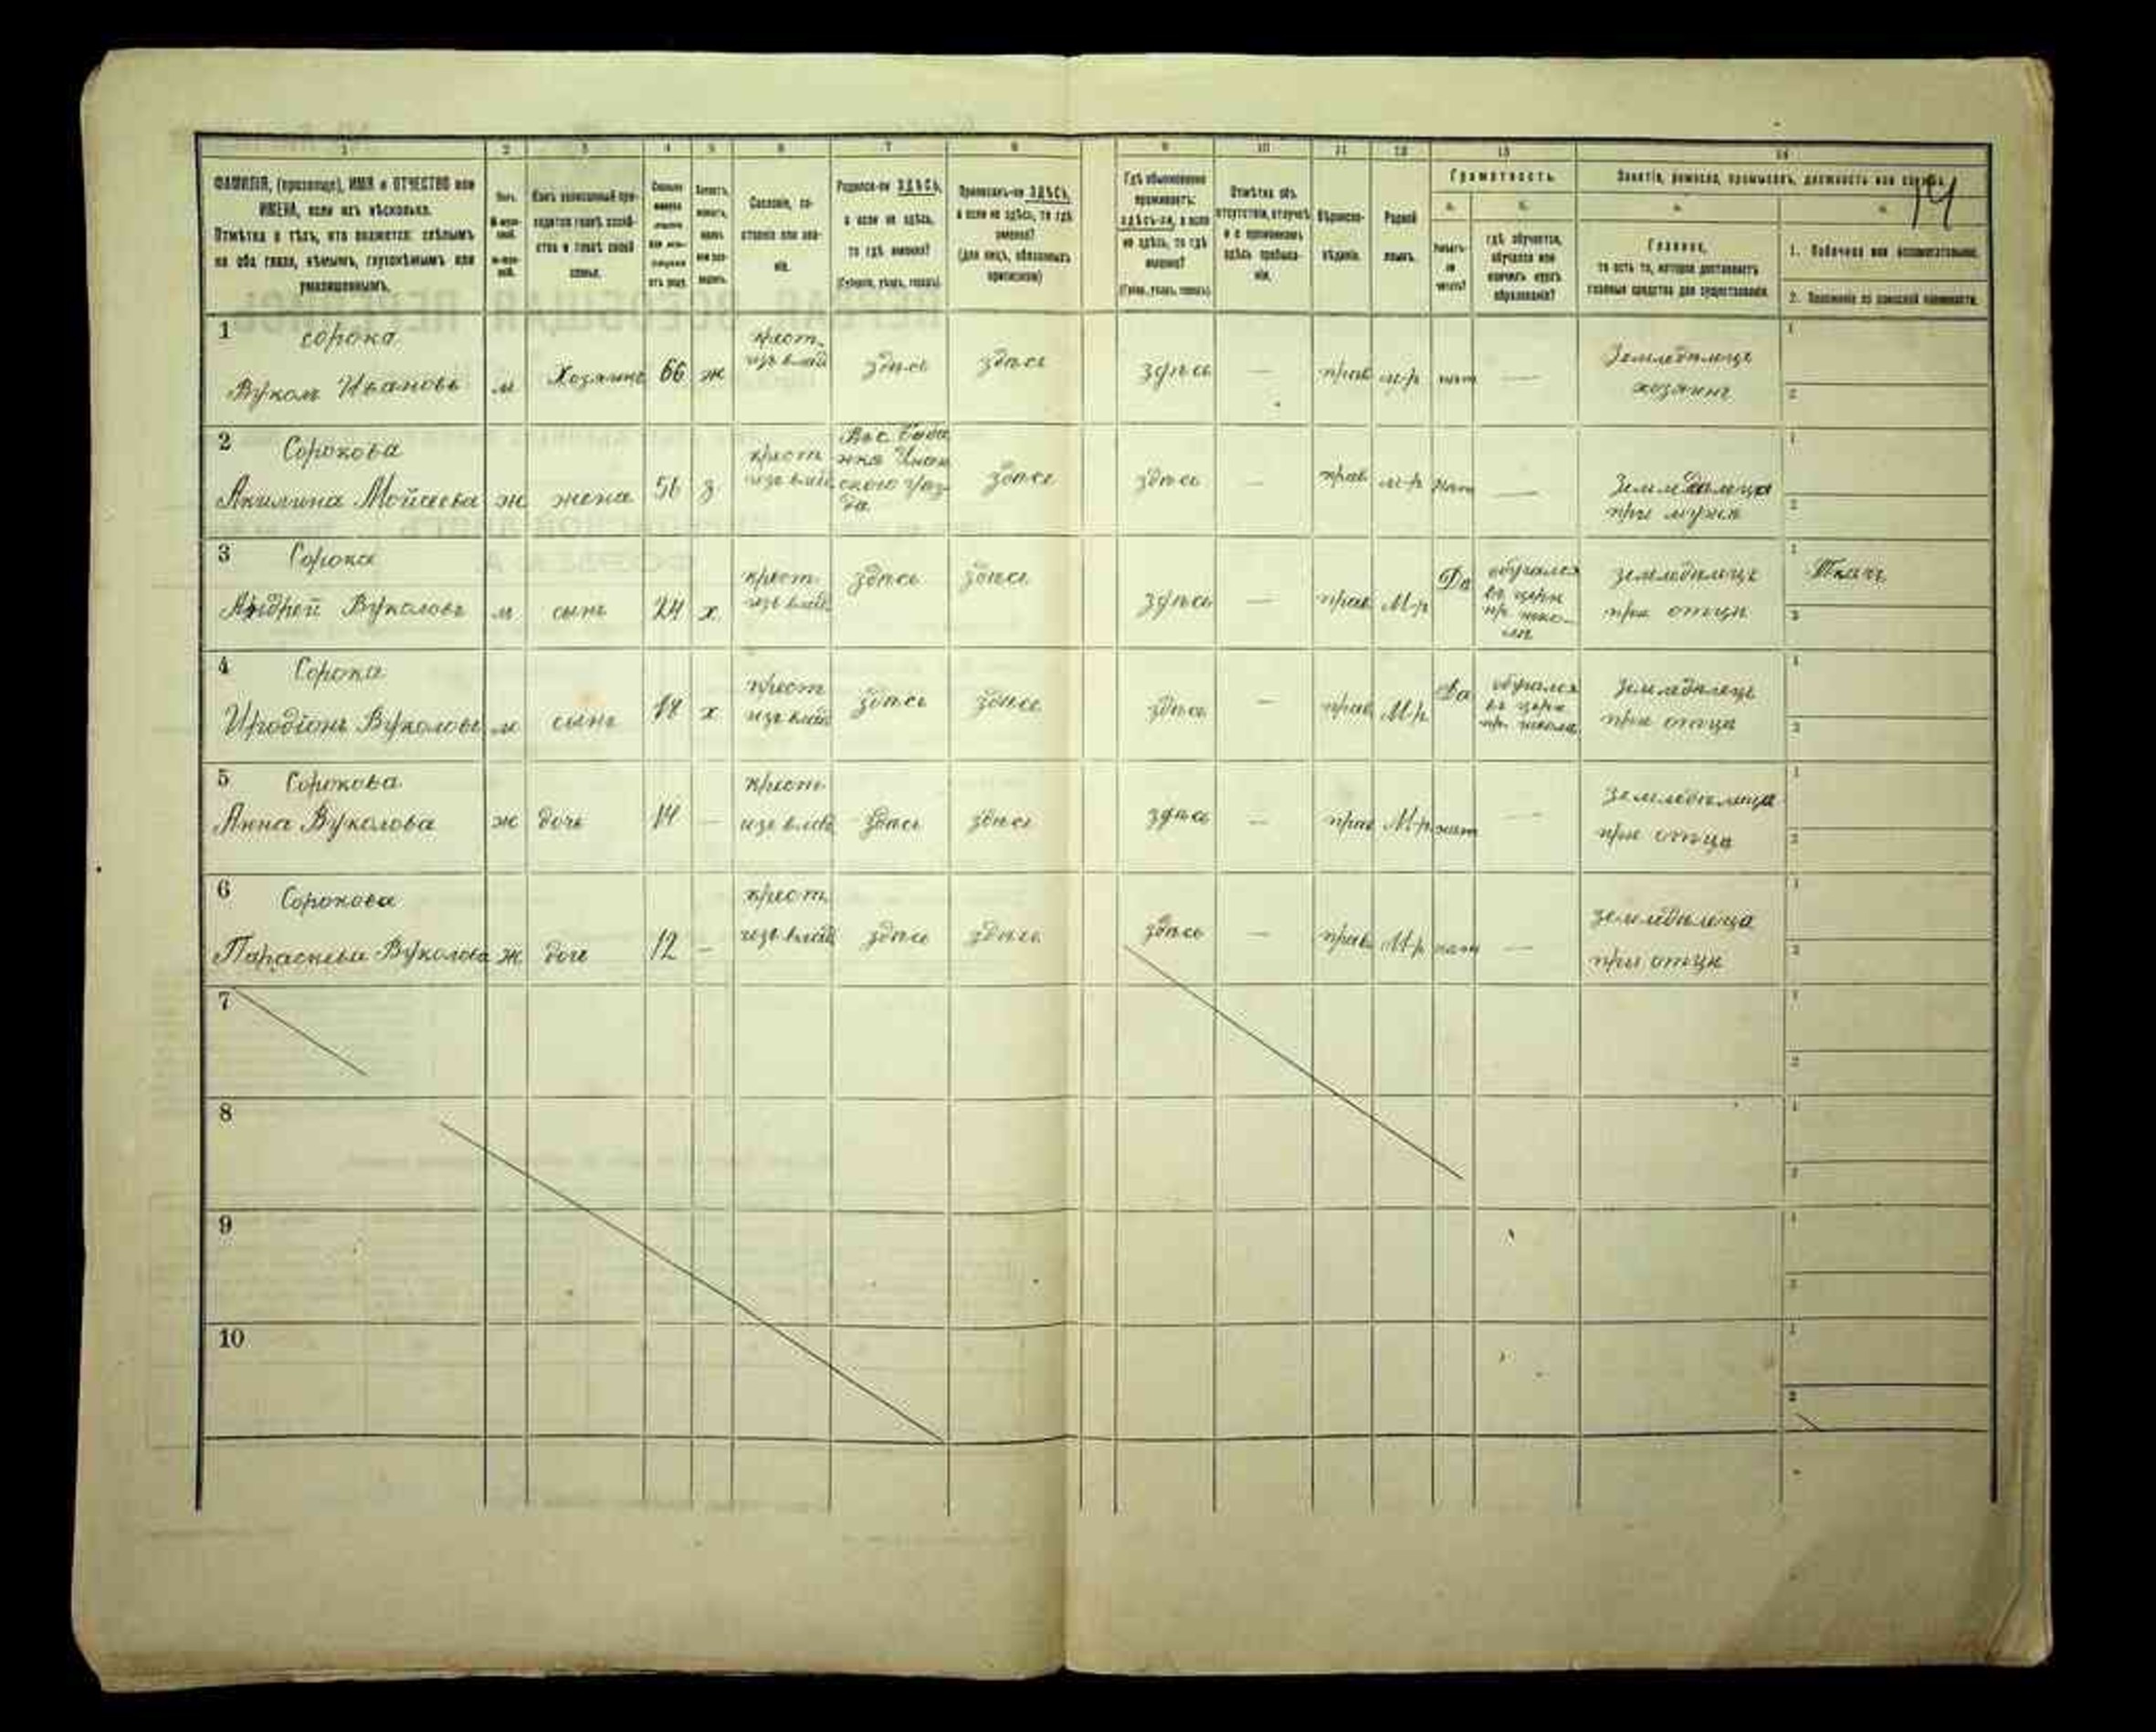 1 2 3 4 5 6 7 8 9 10 11 12 13 14
ФАМИЛІЯ, (прозвище), ИМЯ и ОТЧЕСТВО или
ИМЕНА, если ихъ нѣсколько.
Отмѣтка о тѣхъ, кто окажется: слѣпымъ
на оба глаза, нѣмымъ, глухонѣмымъ или
умалишеннымъ.
Сословіе, со-
стояніе или зва-
ніе.
Родился-ли ЗДѢСЬ,
а если не здѣсь,
то гдѣ именно?
(Губернія, уѣздъ, городъ)
Приписанъ-ли ЗДѢСЬ,
а если не здѣсь, то гдѣ
именно?
(для лицъ, обязанныхъ
припискою)
Гдѣ обыкновенно
проживаетъ:
здѣсь-ли, а если
не здѣсь, то гдѣ
именно?
(Губ., уѣздъ, городъ)
Отмѣтка объ
отсутствіи, отлучкѣ
и о временномъ
здѣсь пребыва-
ніи.
Вѣроиспо-
вѣданіе.
Родной
языкъ.
Грамотность.
гдѣ обучается,
обучался или
кончилъ курсъ
образованія?
Занятіе, ремесло, промыселъ, должность или служба.
14
Главное,
то есть то, которое доставляетъ
главныя средства для существованія.
1. Побочное или вспомогательное.
2. Положеніе по воинской повинности.
1 сорока
Вуколъ Ивановъ м Хозяинъ 66 ж крест. изъ влад здѣсь здѣсь здѣсь — прав м-р нѣт — Земледѣлецъ
хозяинъ
2 Сорокова
Акилина Мойсеева ж жена 56 з крест изъ влад здѣсь здѣсь — прав м-р нѣт — Земледѣлица
при мужѣ
3 Сорока
Андрей Вуколовъ м сынъ 24 х крест. изъ влад здѣсь здѣсь здѣсь — прав М-р Да обучался
въ церк
пр. шко-
лѣ
земледѣлецъ
при отцѣ
Ткачъ
4 Сорока
Иродіонъ Вуколовъ м сынъ 18 х крест изъ влад здѣсь здѣсь здѣсь — прав М-р Да обучался
въ церк
пр. школѣ
земледѣлецъ
при отцѣ
5 Сорокова
Анна Вуколова ж дочь 14 — крест изъ влад здѣсь здѣсь здѣсь — прав М-р нѣт — земледѣлица
при отцѣ
6 Сорокова
Параскева Вуколова ж дочь 12 — крест. изъ влад здѣсь здѣсь здѣсь — прав М-р нѣт — земледѣлица
при отцѣ
7
8
9
10